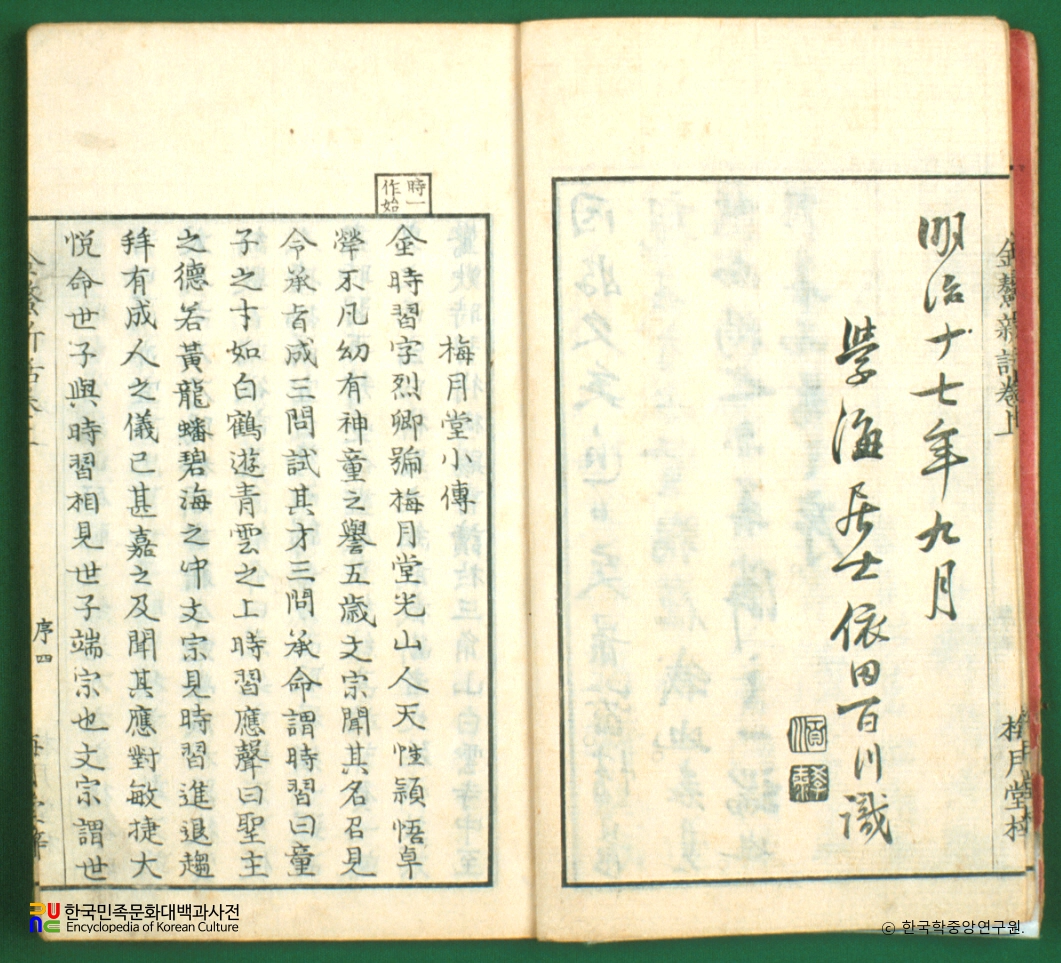 金鰲新話卷上
梅月堂
明治十七年九月
學海居士依田百川識
時一
作始
梅月堂小傳
金時習字烈卿號梅月堂光山人天性頴悟卓
犖不凡幼有神童之譽五歲文宗聞其名召見
令承旨成三問試其才三問承命謂時習曰童
子之才如白鶴遊青雲之上時習應聲曰聖主
之德若黃龍蟠碧海之中文宗見時習進退趨
拜有成人之儀已甚嘉之及聞其應對敏捷大
悅命世子與時習相見世子端宗也文宗謂世
序四
한국민족문화대백과사전
Encyclopedia of Korean Culture
© 한국학중앙연구원.